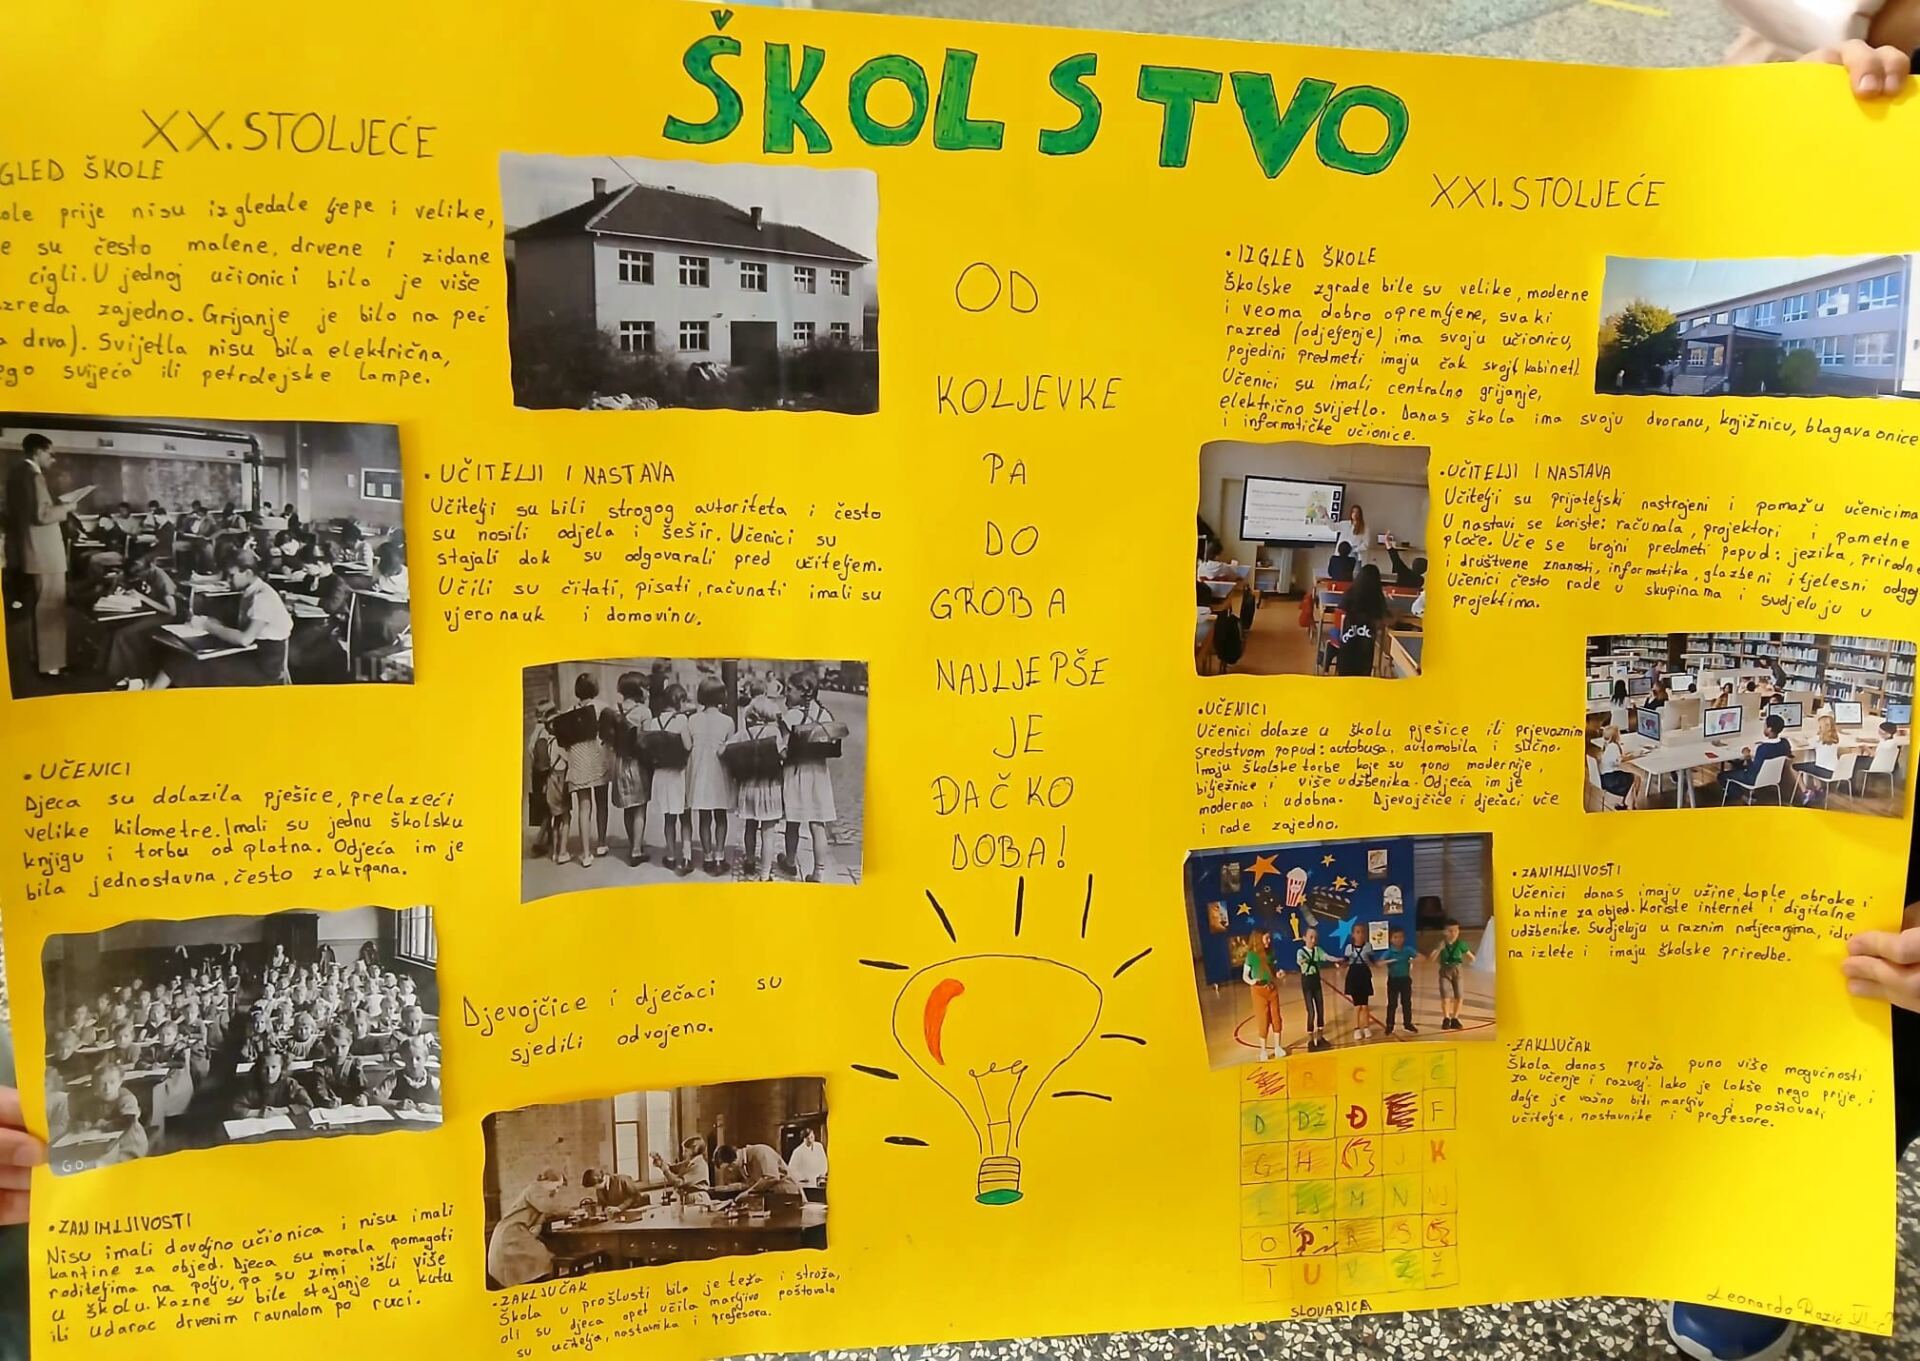 ŠKOLSTVO
XX. STOLJEĆE
GLED ŠKOLE
ole prije nisu izgledale ljepe i velike,
e su često malene, drvene i zidane
cigli. U jednoj učionici bilo je više
zreda zajedno. Grijanje je bilo na peć
a drva). Svijetla nisu bila električna,
ego svijeća ili petrolejske lampe.
• UČITELJI I NASTAVA
Učitelji su bili strogog autoriteta i često
su nosili odjela i šešir. Učenici su
stajali dok su odgovarali pred učiteljem.
Učili su čitati, pisati, računati imali su
vjeronauk i domovinu.
• UČENICI
Djeca su dolazila pješice, prelazeći
velike kilometre. Imali su jednu školsku
knjigu i torbu od platna. Odjeća im je
bila jednostavna, često zakrpana.
Djevojčice i dječaci su
sjedili odvojeno.
GO.
• ZANIMLJIVOSTI
Nisu imali dovoljno učionica i nisu imali
kantine za objed. Djeca su morala pomagati
roditeljima na polju, pa su zimi išli više
u školu. Kazne su bile stajanje u kutu
ili udarac drvenim ravnalom po ruci.
- ZAKLJUČAK
Škola u prošlosti bila je teža i stroža,
ali su djeca opet učila marljivo poštovala
su učitelja, nastavnika i profesora.
OD
KOLJEVKE
PA
DO
GROBA
NAJLJEPŠE
JE
ĐAČKO
DOBA!
XXI. STOLJEĆE
• IZGLED ŠKOLE
Školske zgrade bile su velike, moderne
i veoma dobro opremljene, svaki
razred (odjeljenje) ima svoju učionicu,
pojedini predmeti imaju čak svoj kabinet.
Učenici su imali centralno grijanje,
električno svijetlo. Danas škola ima svoju dvoranu, knjižnicu, blagavaonice
i informatičke učionice.
• UČITELJI I NASTAVA
Učitelji su prijateljski nastrojeni i pomažu učenicima
U nastavi se koriste: računala, projektori i pametne
ploče. Uče se brojni predmeti poput: jezika, prirodne
i društvene znanosti, informatika, glazbeni i tjelesni odgoj
Učenici često rade u skupinama i sudjeluju u
projektima.
• UČENICI
Učenici dolaze u školu pješice ili prjevoznim
sredstvom poput: autobusa, automobila i slično.
Imaju školske torbe koje su puno modernije,
bilježnice i više udžbenika. Odjeća im je
moderna i udobna. Djevojčice i dječaci uče
i rade zajedno.
• ZANIMLJIVOSTI
Učenici danas imaju užine, tople, obroke i
kantine za objed. Koriste internet i digitalne
udžbenike. Sudjeluju u raznim natjecanjima, idu
na izlete i imaju školske priredbe.
- ZAKLJUČAK
Škola danas pruža puno više mogućnosti
za učenje i razvoj. Iako je lakše nego prije, i
dalje je važno biti marljiv i poštovati
učitelje, nastavnike i profesore.
B C Č Ć
D DŽ Đ E F
G H I J K
L LJ M N NJ
O P R S Š
T U V Z Ž
SLOVARICA
Leonardo Razić VI.-c